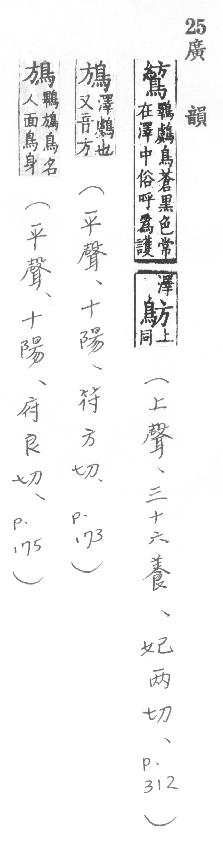 25 廣韻
鳥蒼黑色常
在澤中俗呼爲護
澤
鴋上同
(上聲、三十六養、妃兩切、p.312)
鴋澤鸆也
又音方
(平聲、十陽、符方切、p.173)
鴋鳥名
人面鳥身
(平聲、十陽、府良切、p.175)